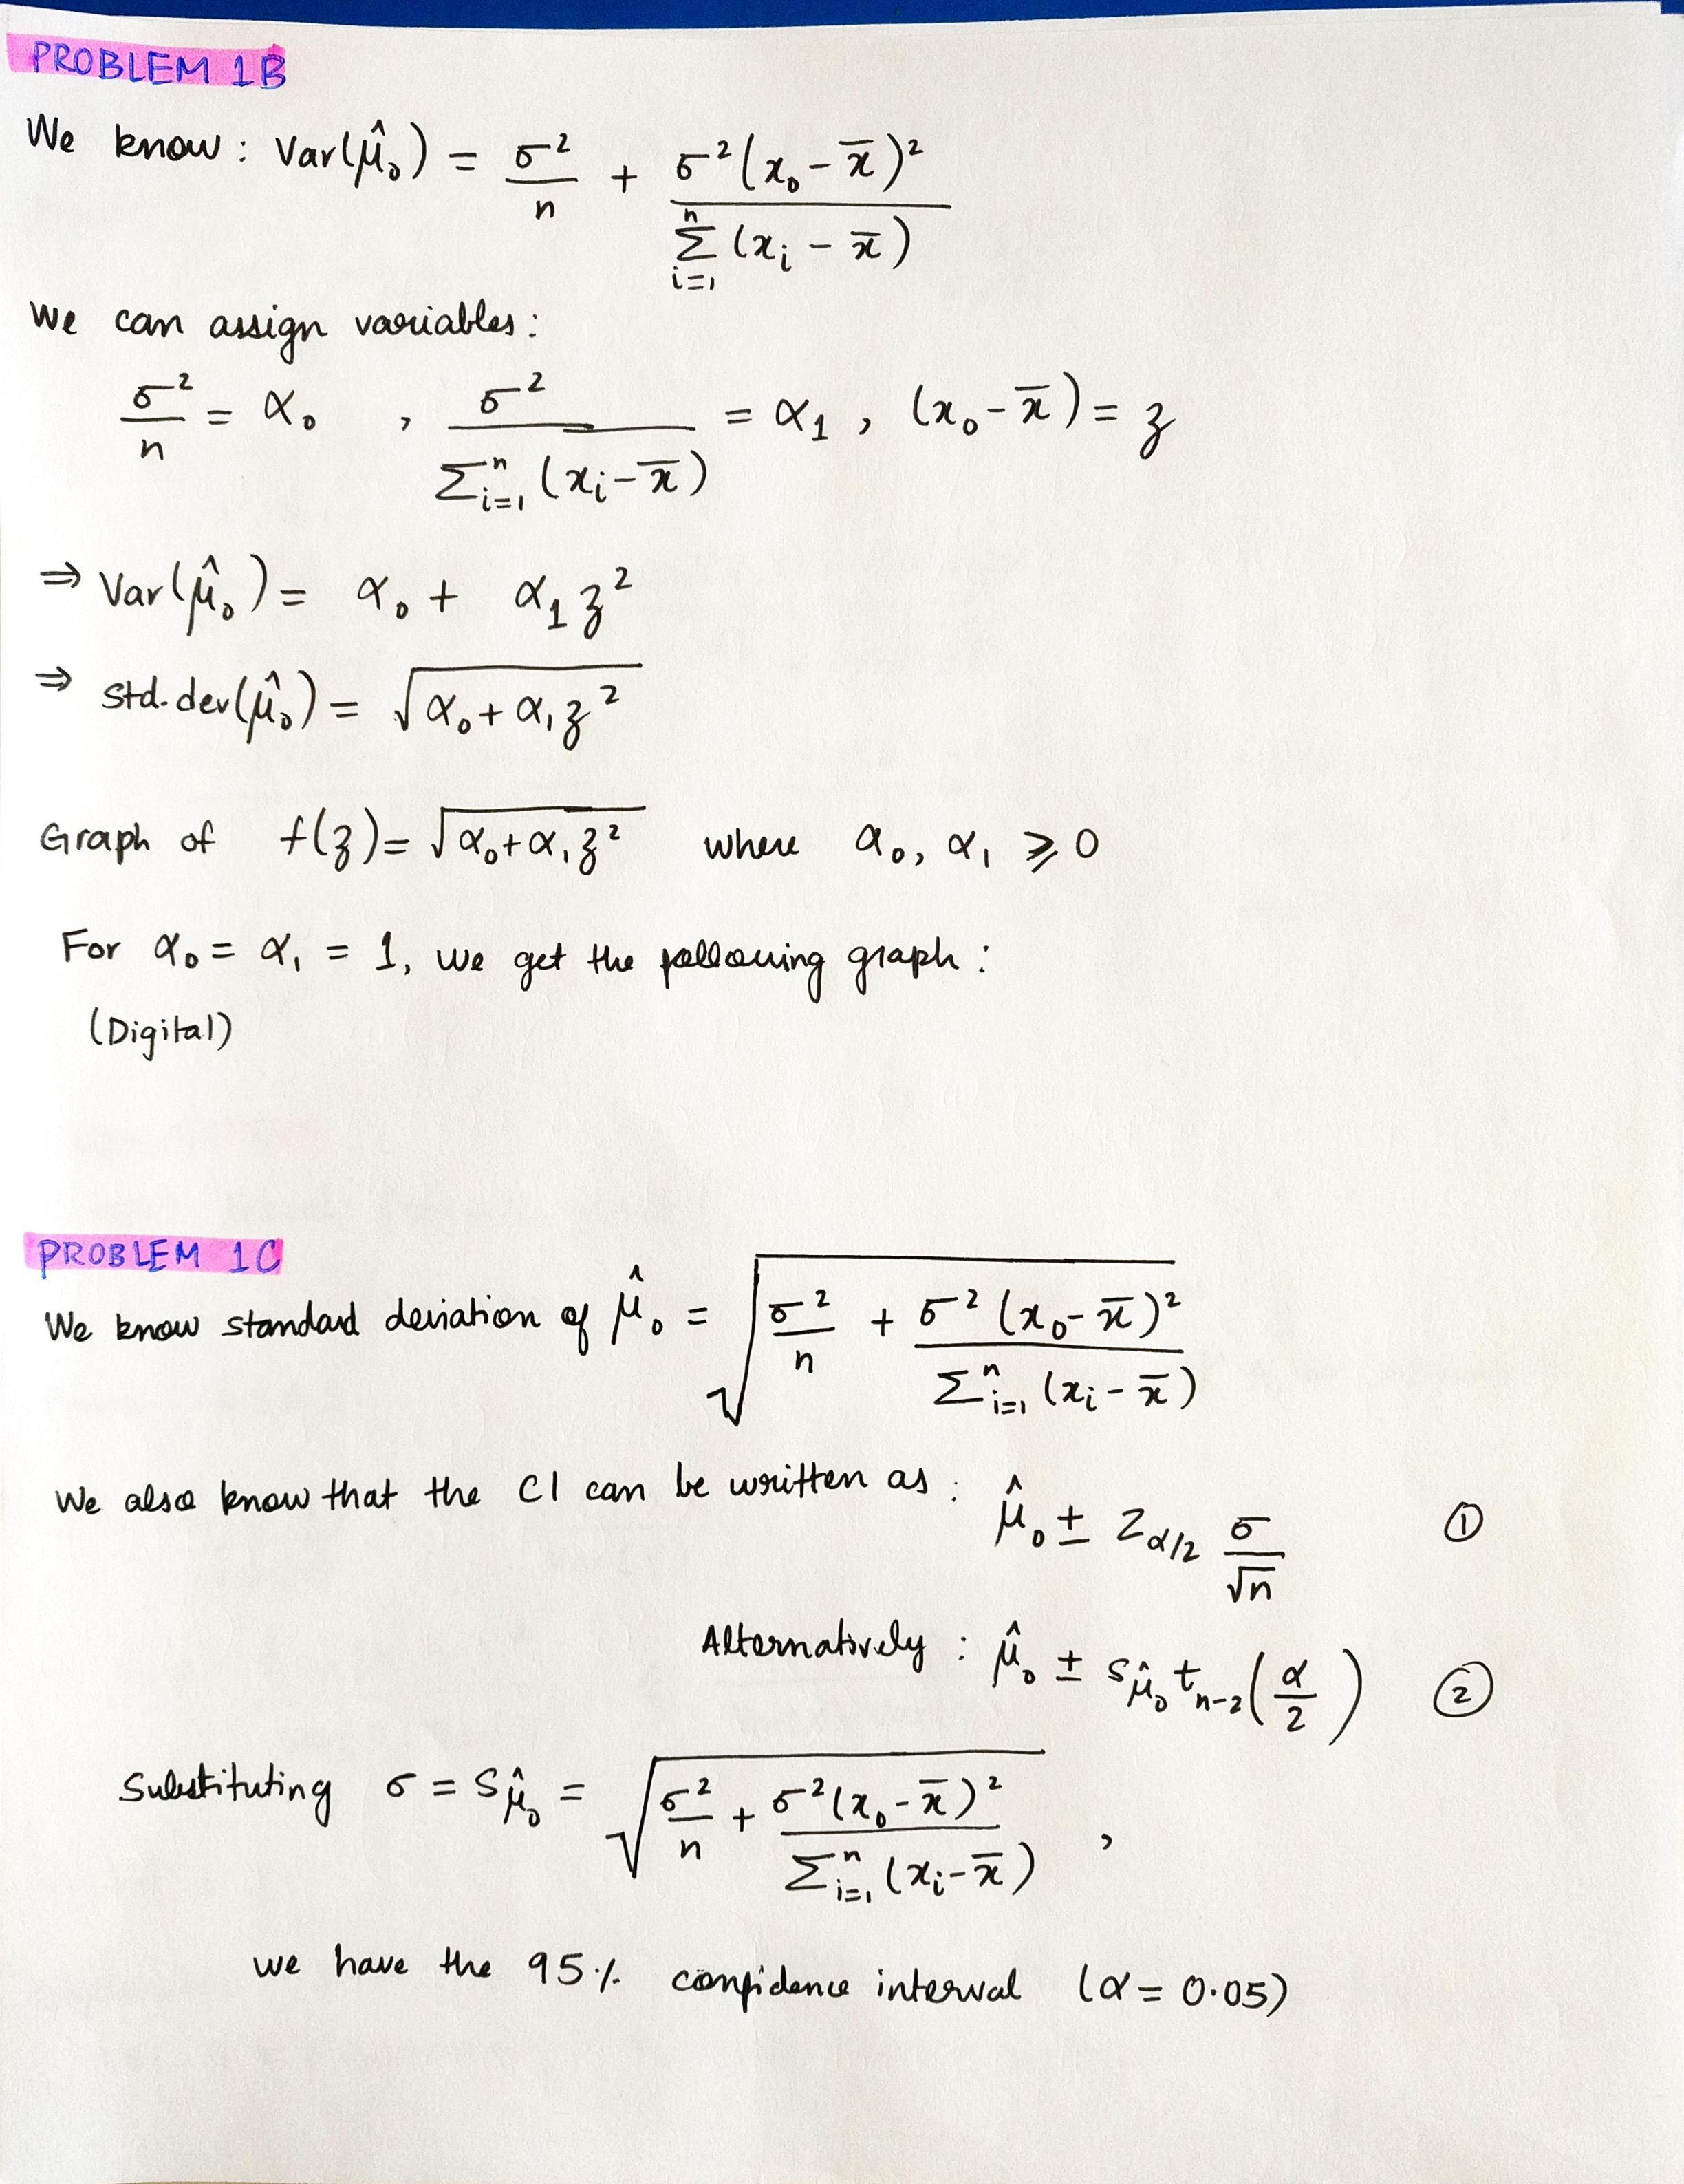 PROBLEM 1B
We know: Var(μ̂₀) = σ²/n + σ²(x₀ - x̄)² / Σⁿᵢ₌₁ (xᵢ - x̄)
We can assign variables:
σ²/n = α₀ , σ² / Σⁿᵢ₌₁ (xᵢ - x̄) = α₁ , (x₀ - x̄) = z
⇒ Var(μ̂₀) = α₀ + α₁z²
⇒ std.dev(μ̂₀) = √(α₀ + α₁z²)
Graph of f(z) = √(α₀ + α₁z²) where α₀, α₁ ⩾ 0
For α₀ = α₁ = 1, we get the following graph:
(Digital)
PROBLEM 1C
We know standard deviation of μ̂₀ = √(σ²/n + σ²(x₀ - x̄)² / Σⁿᵢ₌₁ (xᵢ - x̄))
We also know that the CI can be written as: μ̂₀ ± Z_α/2 σ/√n ①
Alternatively: μ̂₀ ± s_μ̂₀ t_n-2(α/2) ②
Substituting σ = S_μ̂₀ = √(σ²/n + σ²(x₀ - x̄)² / Σⁿᵢ₌₁ (xᵢ - x̄)) ,
we have the 95% confidence interval (α = 0.05)